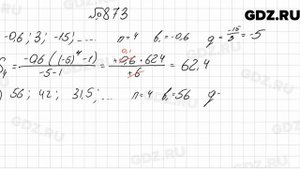 GDZ.RU
№873
-0,6; 3; -15; ..... n=4 b₁=-0,6 q = -15/3 = -5
S₄ = -0,6 ((-5)⁴-1) / -5-1 = +0,6 · 624 / +6 = 62,4
0,1
) 56; 42; 31,5; ... n=4 b₁=56 q=
GDZ.RU